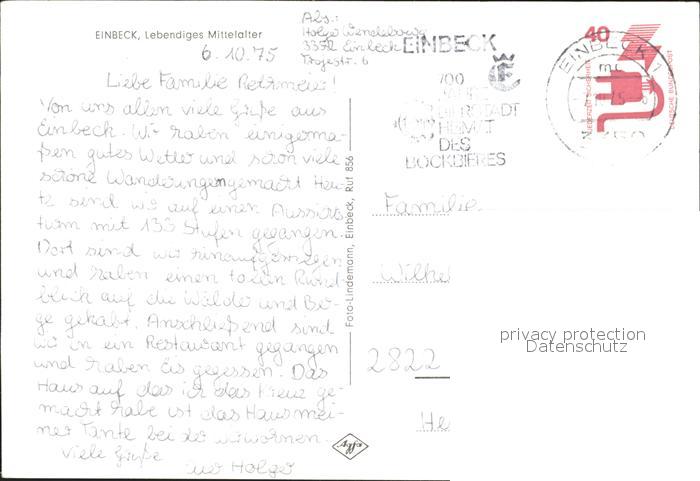 EINBECK, Lebendiges Mittelalter
6.10.75
Abs.:
Holger
3352 Einbeck
6
Liebe Familie !
Von uns allen viele Grüße aus
Einbeck. Wir haben einigerma-
ßen gutes Wetter und schon viele
schöne Wanderungen gemacht. Heu-
te sind wir auf einen Aussichts
turm mit 133 Stufen gegangen.
Dort sind wir hinaufgestiegen
und haben einen tollen Rund
blick auf die Wälder und Ber-
ge gehabt. Anschließend sind
wir in ein Restaurant gegangen
und haben Eis gegessen. Das
Haus auf das ich das Kreuz ge-
macht habe ist das Haus mei-
ner Tante bei der wir wohnen
viele Grüße
euer Holger
Foto-Lindemann, Einbeck, Ruf 856
Agfa
EINBECK
700
JAHRE
BIERSTADT
HEIMAT
DES
BOCKBIERES
EINBECK 1
40
JEDERZEIT SICHERHEIT
DEUTSCHE BUNDESPOST
Familie
Wilhe
2822
He
privacy protection
Datenschutz